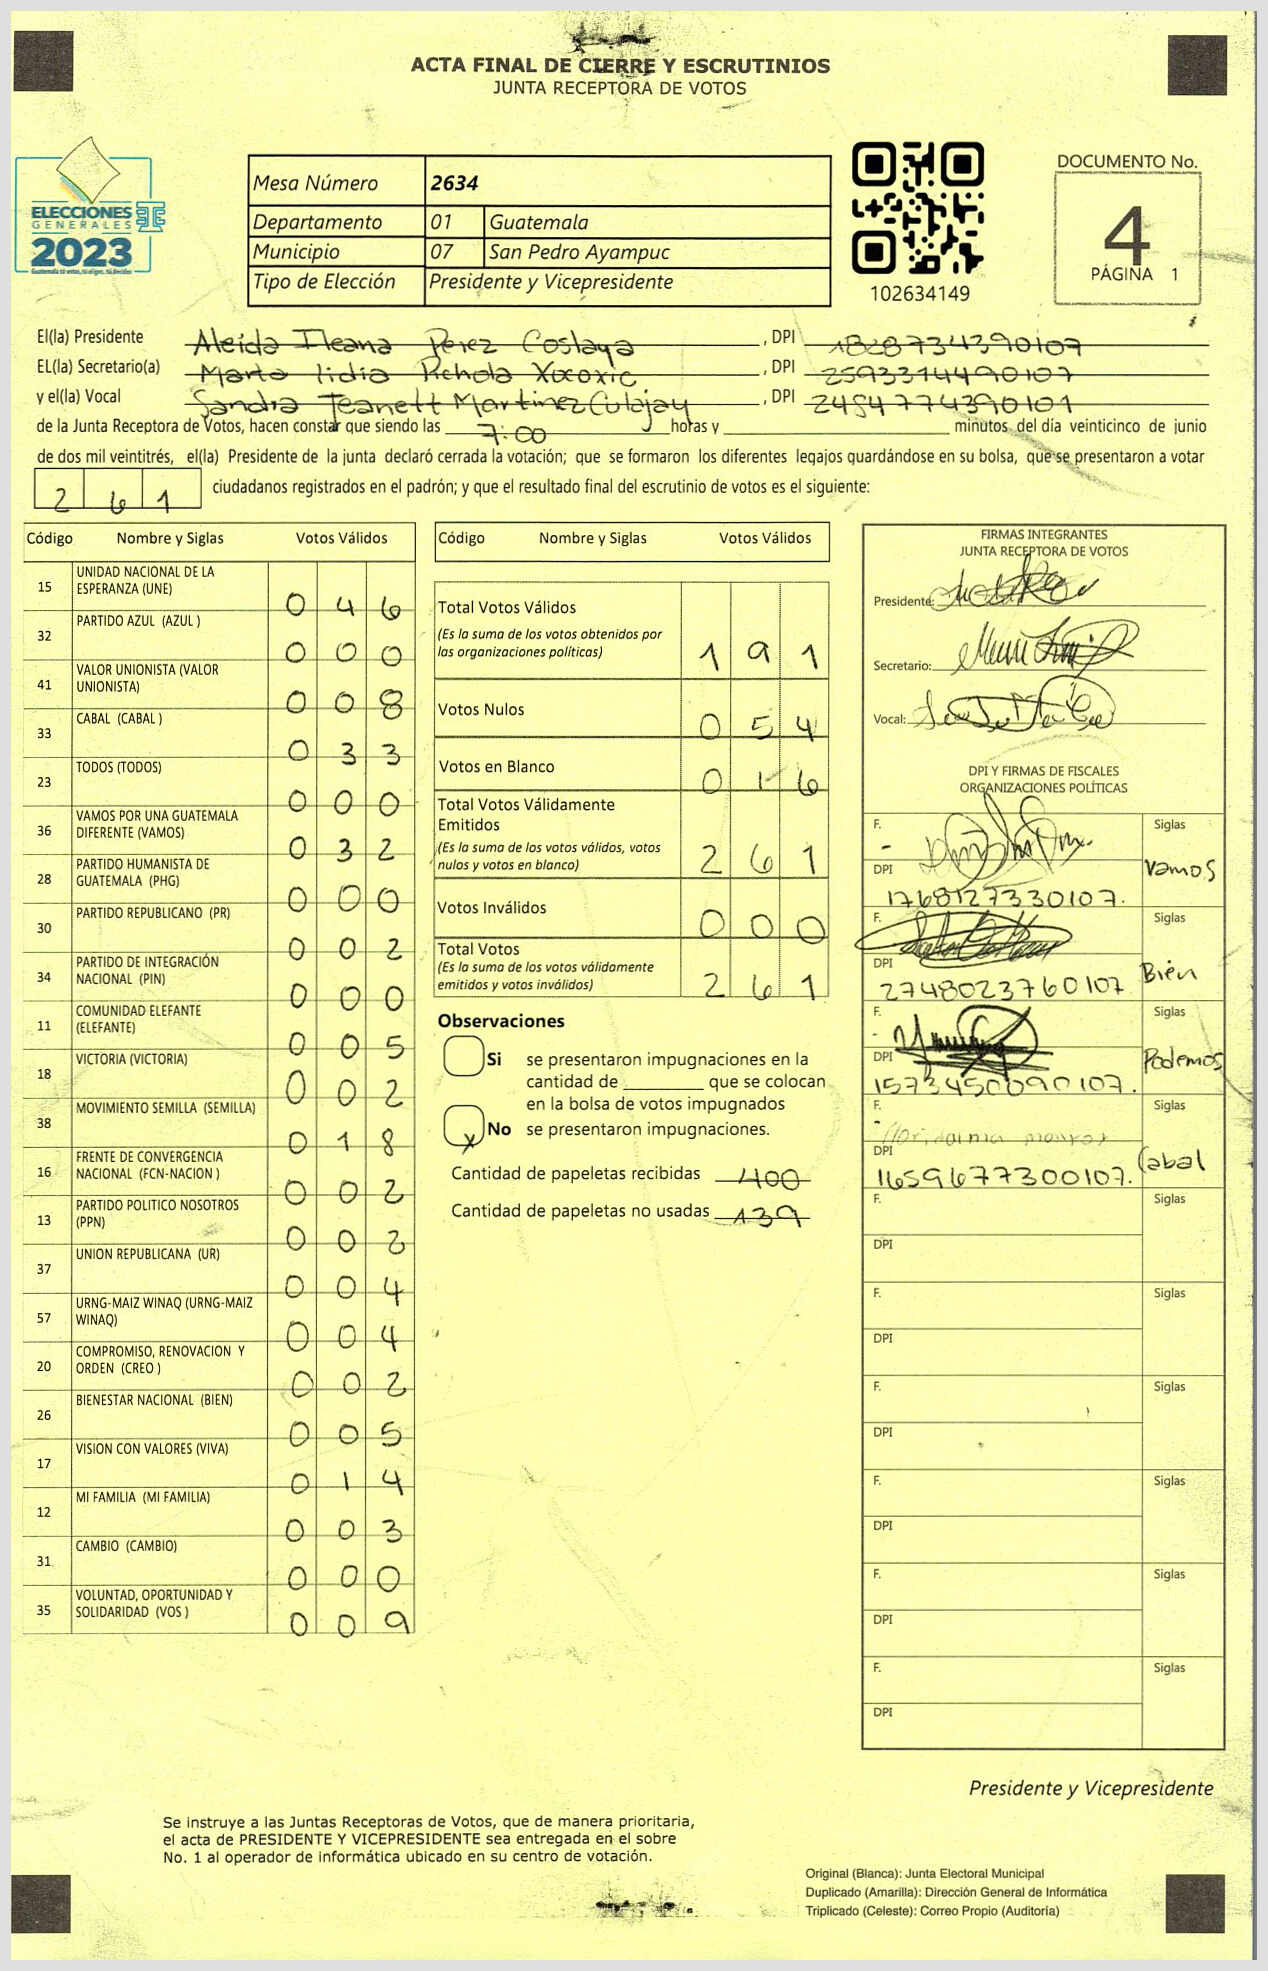 ACTA FINAL DE CIERRE Y ESCRUTINIOS
JUNTA RECEPTORA DE VOTOS
ELECCIONES
GENERALES
2023
Mesa Número 2634
Departamento 01 Guatemala
Municipio 07 San Pedro Ayampuc
Tipo de Elección Presidente y Vicepresidente
102634149
DOCUMENTO No.
4
PÁGINA 1
El(la) Presidente Aleida Ileana Perez Coslaya, DPI 1828734390107
EL(la) Secretario(a) Marta lidia Pichola Xocoxic, DPI 2593314490107
y el(la) Vocal Sandra Jeanett Martinez Culajay, DPI 2454774390101
de la Junta Receptora de Votos, hacen constar que siendo las 7:00 horas y minutos del día veinticinco de junio
de dos mil veintitrés, el(la) Presidente de la junta declaró cerrada la votación; que se formaron los diferentes legajos guardándose en su bolsa, que se presentaron a votar
261 ciudadanos registrados en el padrón; y que el resultado final del escrutinio de votos es el siguiente:
Código Nombre y Siglas Votos Válidos
15 UNIDAD NACIONAL DE LA ESPERANZA (UNE) 046
32 PARTIDO AZUL (AZUL ) 000
41 VALOR UNIONISTA (VALOR UNIONISTA) 008
33 CABAL (CABAL ) 033
23 TODOS (TODOS) 000
36 VAMOS POR UNA GUATEMALA DIFERENTE (VAMOS) 032
28 PARTIDO HUMANISTA DE GUATEMALA (PHG) 000
30 PARTIDO REPUBLICANO (PR) 002
34 PARTIDO DE INTEGRACIÓN NACIONAL (PIN) 000
11 COMUNIDAD ELEFANTE (ELEFANTE) 005
18 VICTORIA (VICTORIA) 002
38 MOVIMIENTO SEMILLA (SEMILLA) 018
16 FRENTE DE CONVERGENCIA NACIONAL (FCN-NACION ) 002
13 PARTIDO POLITICO NOSOTROS (PPN) 002
37 UNION REPUBLICANA (UR) 004
57 URNG-MAIZ WINAQ (URNG-MAIZ WINAQ) 004
20 COMPROMISO, RENOVACION Y ORDEN (CREO ) 002
26 BIENESTAR NACIONAL (BIEN) 005
17 VISION CON VALORES (VIVA) 014
12 MI FAMILIA (MI FAMILIA) 003
31 CAMBIO (CAMBIO) 000
35 VOLUNTAD, OPORTUNIDAD Y SOLIDARIDAD (VOS ) 009
Código Nombre y Siglas Votos Válidos
Total Votos Válidos
(Es la suma de los votos obtenidos por
las organizaciones políticas) 191
Votos Nulos 054
Votos en Blanco 016
Total Votos Válidamente
Emitidos
(Es la suma de los votos válidos, votos
nulos y votos en blanco) 261
Votos Inválidos 000
Total Votos
(Es la suma de los votos válidamente
emitidos y votos inválidos) 261
Observaciones
Si se presentaron impugnaciones en la
cantidad de ________ que se colocan
en la bolsa de votos impugnados
x No se presentaron impugnaciones.
Cantidad de papeletas recibidas 400
Cantidad de papeletas no usadas 139
FIRMAS INTEGRANTES
JUNTA RECEPTORA DE VOTOS
Presidente:
Secretario:
Vocal:
DPI Y FIRMAS DE FISCALES
ORGANIZACIONES POLÍTICAS
F. Siglas
DPI 1768127330107. Vamos
F. Siglas
DPI 2748023760107 Bien
F. Siglas
DPI 1573450090107. Podemos
F. Siglas
DPI 1659677300107. Cabal
F. Siglas
DPI
F. Siglas
DPI
F. Siglas
DPI
F. Siglas
DPI
F. Siglas
DPI
F. Siglas
DPI
Presidente y Vicepresidente
Se instruye a las Juntas Receptoras de Votos, que de manera prioritaria,
el acta de PRESIDENTE Y VICEPRESIDENTE sea entregada en el sobre
No. 1 al operador de informática ubicado en su centro de votación.
Original (Blanca): Junta Electoral Municipal
Duplicado (Amarilla): Dirección General de Informática
Triplicado (Celeste): Correo Propio (Auditoría)